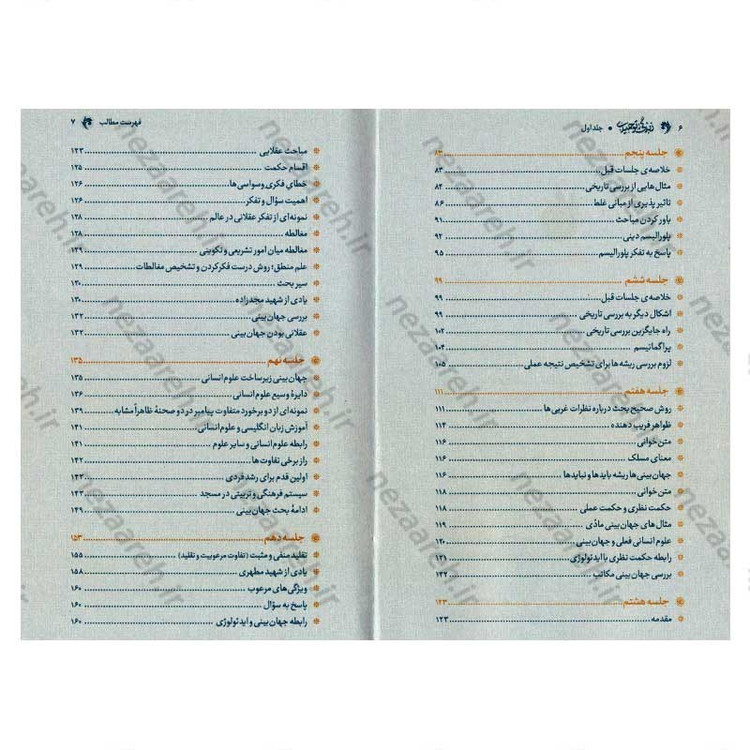 ۶ زندگی توحیدی • جلد اول
جلسه پنجم ۶۳
خلاصه‌ی جلسات قبل ۸۳
مثال‌هایی از بررسی تاریخی ۸۴
تاثیر پذیری از مبانی غلط ۸۶
باور کردن مباحث ۹۱
پلورالیسم دینی ۹۲
پاسخ به تفکر پلورالیسم ۹۵
جلسه ششم ۹۹
خلاصه‌ی جلسات قبل ۹۹
اشکال دیگر به بررسی تاریخی ۹۹
راه جایگزین بررسی تاریخی ۱۰۲
پراگماتیسم ۱۰۴
لزوم بررسی ریشه‌ها برای تشخیص نتیجه عملی ۱۰۵
جلسه هفتم ۱۱۱
روش صحیح بحث درباره نظرات غربی‌ها ۱۱۱
ظواهر فریب دهنده ۱۱۴
متن‌خوانی ۱۱۶
معنای مسلک ۱۱۶
جهان‌بینی‌ها ریشه بایدها و نبایدها ۱۱۶
متن‌خوانی ۱۱۸
حکمت نظری و حکمت عملی ۱۱۸
مثال‌های جهان‌بینی مادّی ۱۱۹
علوم انسانی فعلی و جهان‌بینی ۱۲۰
رابطه حکمت نظری با ایدئولوژی ۱۲۱
بررسی جهان‌بینی مکاتب ۱۲۲
جلسه هشتم ۱۲۳
مقدمه ۱۲۳
فهرست مطالب ۷
مباحث عقلایی ۱۲۳
اقسام حکمت ۱۲۵
خطای فکری وسواسی‌ها ۱۲۶
اهمیت سؤال و تفکر ۱۲۶
نمونه‌ای از تفکر عقلانی در عالم ۱۲۸
مغالطه ۱۲۸
مغالطه میان امور تشریعی و تکوینی ۱۲۹
علم منطق؛ روش درست فکر کردن و تشخیص مغالطات ۱۲۹
سیر بحث ۱۳۰
یادی از شهید مجدزاده ۱۳۰
بررسی جهان‌بینی ۱۳۲
عقلانی بودن جهان‌بینی ۱۳۲
جلسه نهم ۱۳۵
جهان‌بینی زیرساخت علوم انسانی ۱۳۵
دایرهٔ وسیع علوم انسانی ۱۳۶
نمونه‌ای از دو برخورد متفاوت پیامبر در دو صحنهٔ ظاهراً مشابه ۱۳۹
آموزش زبان انگلیسی و علوم انسانی ۱۴۱
رابطه علوم انسانی و سایر علوم ۱۴۱
راز برخی تفاوت‌ها ۱۴۲
اولین قدم برای رشد فردی ۱۴۳
سیستم فرهنگی و تربیتی در مسجد ۱۴۳
ادامهٔ بحث جهان‌بینی ۱۴۹
جلسه دهم ۱۵۳
تقلید منفی و مثبت (تفاوت مرعوبیت و تقلید) ۱۵۵
یادی از شهید مطهری ۱۵۸
ویژگی‌های مرعوب ۱۶۰
پاسخ به سؤال ۱۶۰
رابطه جهان‌بینی و ایدئولوژی ۱۶۰
nezaareh.ir